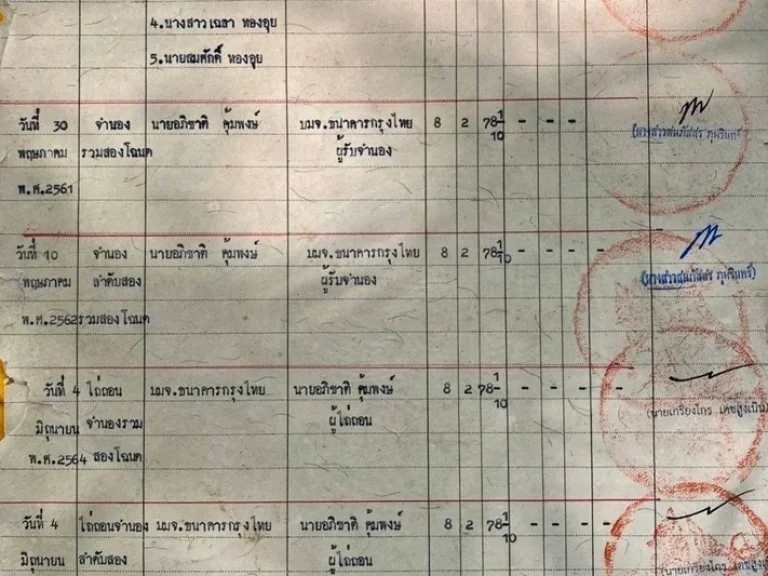 4.นางสาวเฉชา ทองอุย
5.นายสมศักดิ์ ทองอุย
วันที่ 30 จำนอง นายอภิชาติ คุ้มพงษ์ บมจ.ธนาคารกรุงไทย 8 2 78 1/10 - - - -
พฤษภาคม รวมสองโฉนด ผู้รับจำนอง
พ.ศ.2561
วันที่ 10 จำนอง นายอภิชาติ คุ้มพงษ์ บมจ.ธนาคารกรุงไทย 8 2 78 1/10 - - - -
พฤษภาคม ลำดับสอง ผู้รับจำนอง
พ.ศ.2562 รวมสองโฉนด
วันที่ 4 ไถ่ถอน บมจ.ธนาคารกรุงไทย นายอภิชาติ คุ้มพงษ์ 8 2 78 1/10 - - - - -
มิถุนายน จำนองรวม ผู้ไถ่ถอน (นายเกรียงไกร เดชสูงเนิน)
พ.ศ.2564 สองโฉนด
วันที่ 4 ไถ่ถอนจำนอง บมจ.ธนาคารกรุงไทย นายอภิชาติ คุ้มพงษ์ 8 2 78 1/10 - - - -
มิถุนายน ลำดับสอง ผู้ไถ่ถอน (นายเกรียงไกร